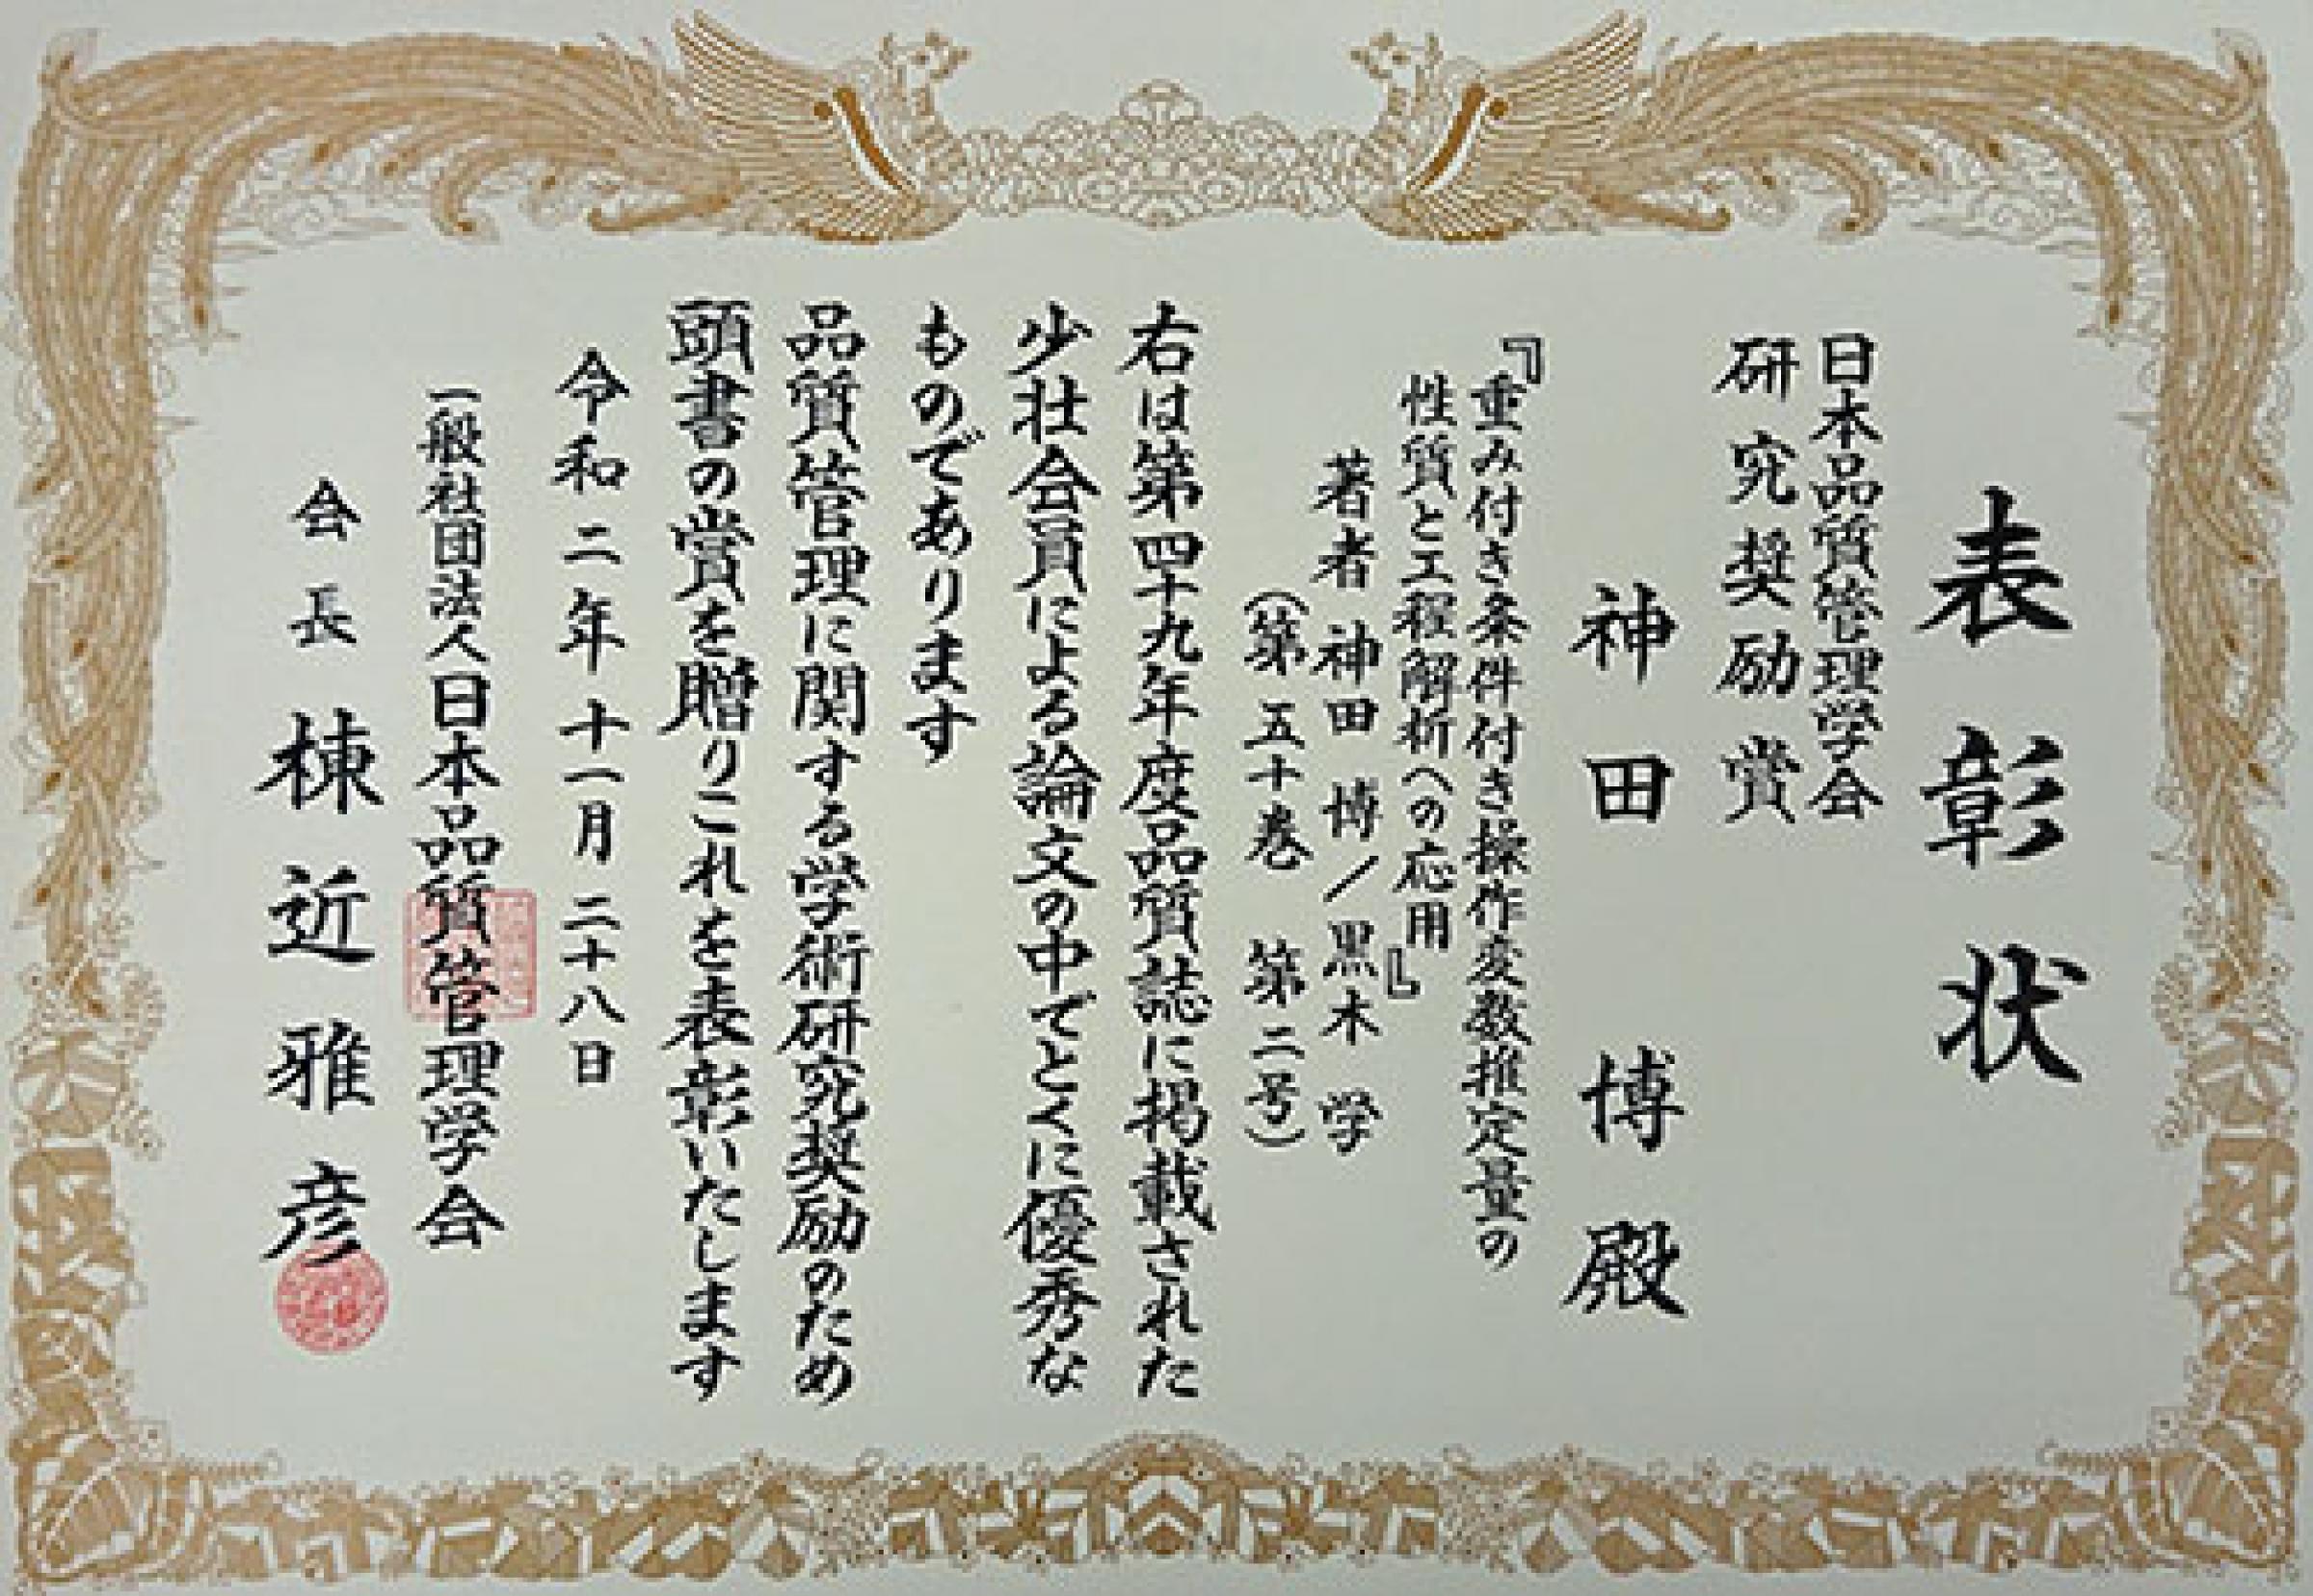 表彰状
日本品質管理学会
研究奨励賞
神田 博 殿
『重み付き条件付き操作変数推定量の
性質と工程解析への応用』
著者 神田 博/黒木 学
(第五十巻 第二号)
右は第四十九年度品質誌に掲載された
少壮会員による論文の中でとくに優秀な
ものであります
品質管理に関する学術研究奨励のため
頭書の賞を贈りこれを表彰いたします
令和二年十一月二十八日
一般社団法人日本品質管理学会
会長 棟近雅彦